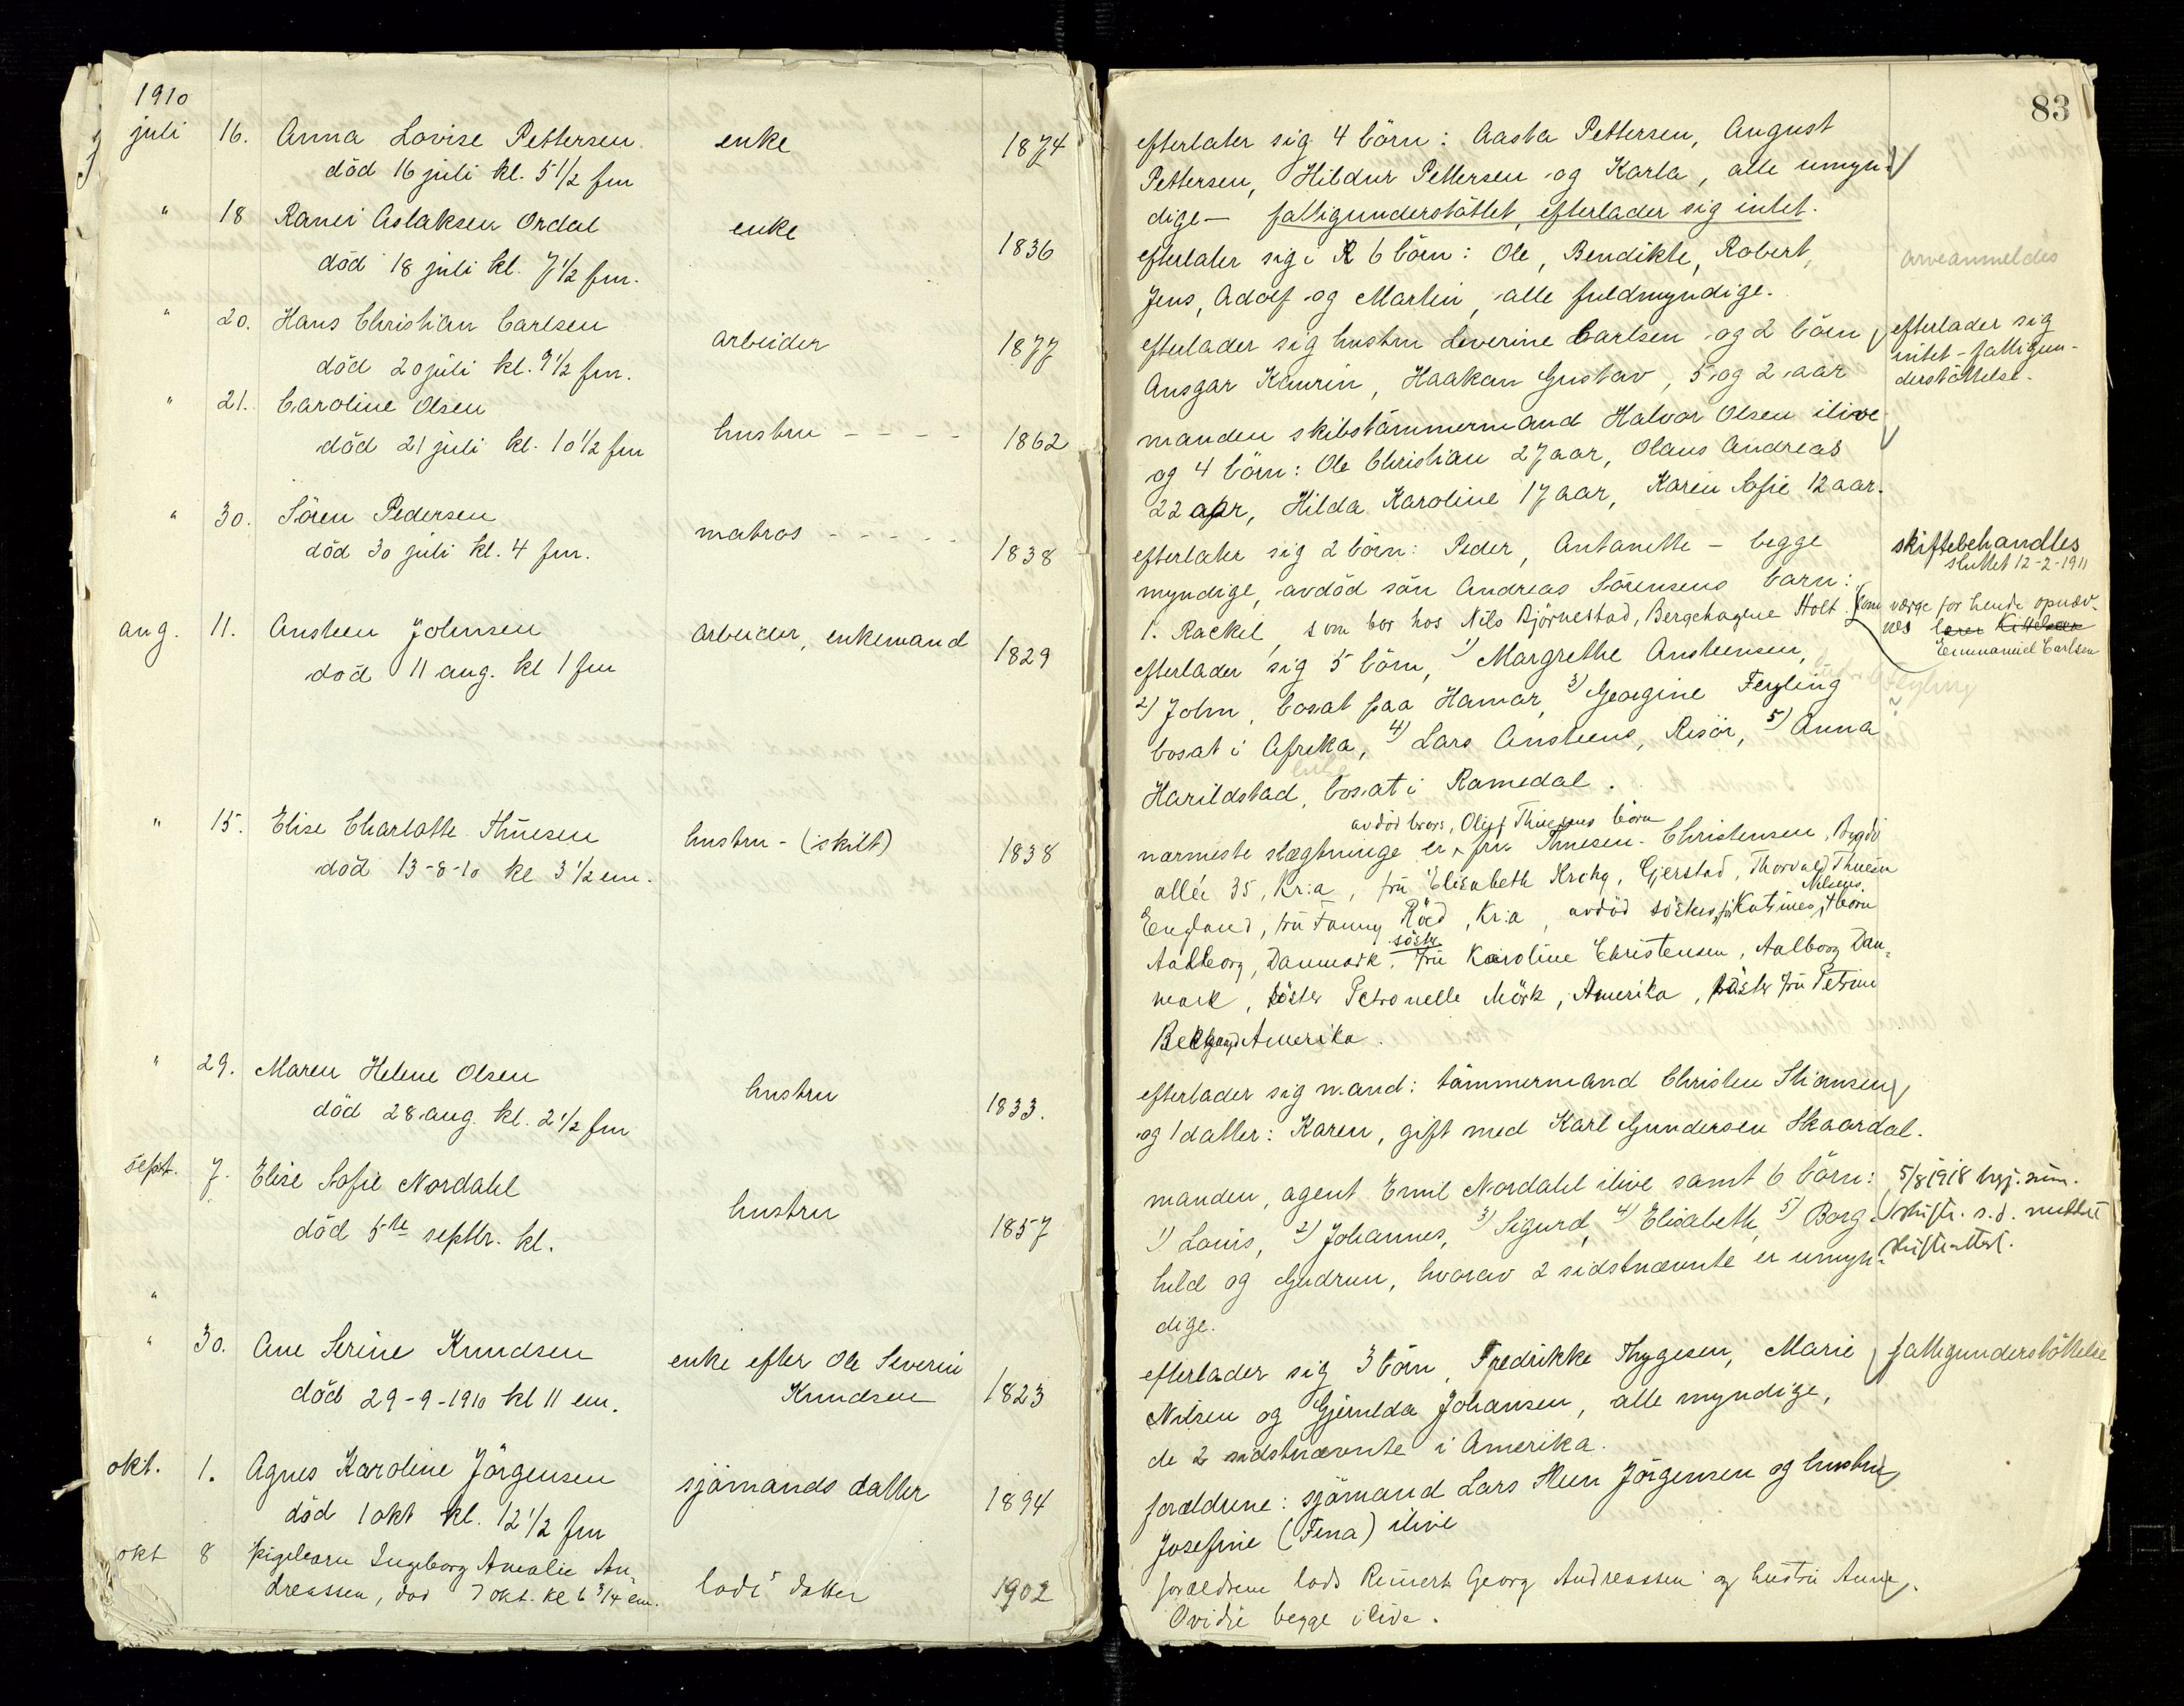 1910
juli 16. Anna Lovise Pettersen enke 1874
död 16 juli kl. 5 1/2 fm
" 18 Ranei Aslaksen Ordal enke 1836
död 18 juli kl. 7 1/2 fm.
" 20. Hans Christian Carlsen arbeider 1877
död 20 juli kl. 9 1/2 fm.
" 21. Caroline Olsen hustru - - - - 1862
död 21 juli kl. 10 1/2 fm
" 30. Sören Pedersen matros - - - - - 1838
död 30 juli kl. 4 fm.
aug. 11. Ansteen Johnsen arbeider, enkemand 1829
död 11 aug. kl 1 fm
" 15. Elise Charlotte Thuesen hustru - (skilt) 1838
död 13-8-10 kl 3 1/2 em.
" 29. Maren Helene Olsen hustru 1833.
död 28 aug. kl. 2 1/2 fm
sept. 7. Elise Sofie Nordahl hustru 1857
död 5te septbr. kl.
"
" 30. Ane Serine Knudsen enke efter Ole Severin
Knudsen 1823
död 29-9-1910 kl 11 em.
okt. 1. Agnes Karoline Jörgensen sjömands datter 1894
död 1 okt kl. 12 1/2 fm
okt 8 pigebarn Ingeborg Amalie An-
dreassen, död 7 okt. kl 6 3/4 em. lods datter 1902
83
efterlater sig 4 börn: Aasta Pettersen, August
Pettersen, Hildur Pettersen og Karla, alle umyn-
dige - fattigunderstöttet, efterlader sig intet.
efterlater sig i R 6 börn: Ole, Bendikte, Robert,
arveanmeldes
Jens, Adolf og Martin, alle fuldmyndige.
efterlader sig hustru Severine Carlsen og 2 börn
Ansgar Kaurin, Haakon Gustav, 5 og 2 aar
efterlader sig
intet - fattigun-
derstöttelse.
manden skibstömmermand Halvor Olsen ilive
og 4 börn: Ole Christian 27 aar, Olaus Andreas
22 aar, Hilda Karoline 17 aar, Karen Sofie 12 aar.
efterlater sig 2 börn: Peder, Antonette - begge
myndige, avdöd sön Andreas Sörensens barn:
1. Rackel, som bor hos Nils Björnestad, Bergehagene Holt.
skiftebehandles
sluttet 12-2-1911
som værge for hende opnæv-
nes
Emmanuel Carlsen
efterlader sig 5 börn, 1) Margrethe Ansteensen,
2) John, bosat paa Hamar, 3) Georgine Feyling
bosat i Afrika, 4) Lars Ansteens, Risör, 5) Anna
Feyling
Harildstad, bosat i Ramsdal.
avdöd brors, Oluf Thuesens börn
nærmeste slægtninge er fru Thuesen-Christensen, Bygdö
allé 35, Kr:a, fru Elisabeth Krohg, Gjerstad, Thorvald Thuesen
England, fru Fanny Röed, Kr:a, avdöd sösters, fru Katrines Nilsens börn
Aalborg, Danmark. söster fru Karoline Christensen, Aalborg Dan-
mark, söster Petronelle Mörk, Amerika, söster fru Petrine
Amerika.
efterlader sig mand: tömmermand Christen Stiansen
og 1 datter: Karen, gift med Karl Gundersen Skaardal.
manden, agent Emil Nordahl ilive samt 6 börn:
1) Louis, 2) Johannes, 3) Sigurd, 4) Elisabeth, 5) Borg-
hild og Gudrun, hvorav 2 sidstnævnte er umyn-
dige.
5/8 1918
skifteattest.
efterlader sig 3 börn, Fredrikke Thygesen, Marie
fattigunderstöttelse
Nilsen og Gjerulda Johansen, alle myndige,
de 2 sidstnævnte i Amerika.
forældrene: sjömand Lars Steen Jörgensen og hustru
Josefine (Fina) ilive
forældrene lods Reinert Georg Andreassen og hustru Anne
Ovidie begge ilive.